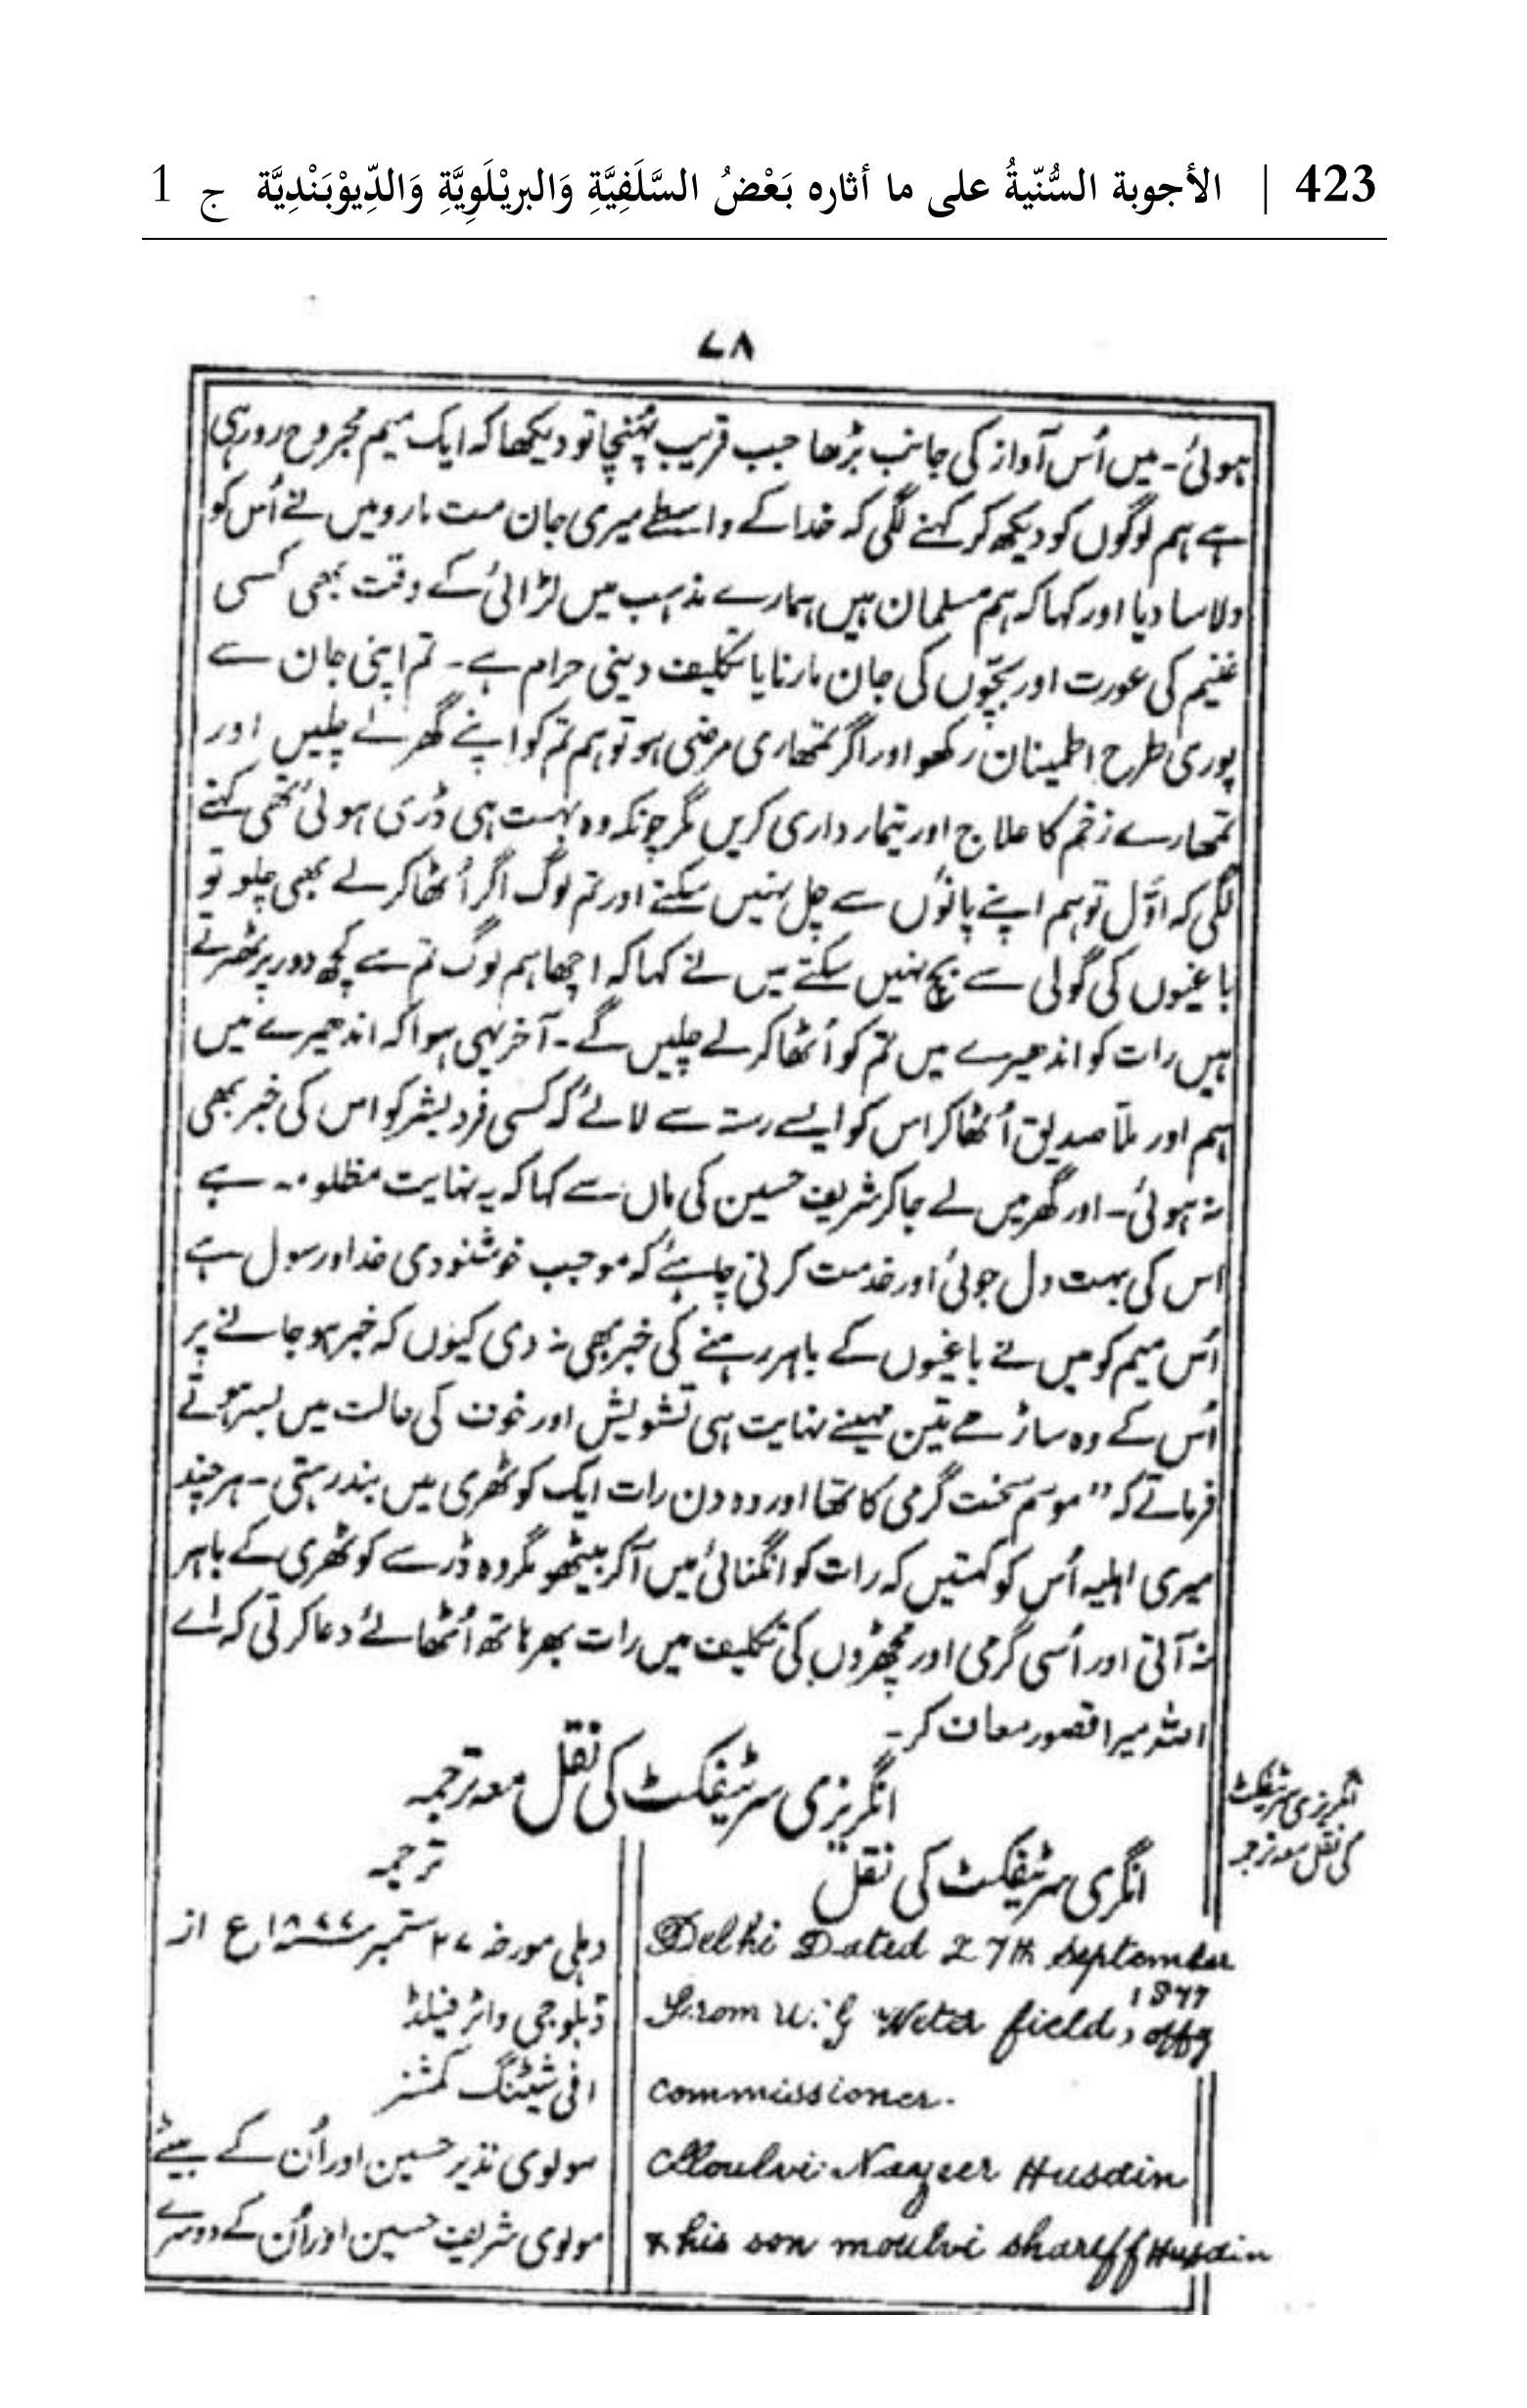 423 | الأجوبة السُّنّيةُ على ما أثاره بَعْضُ السَّلَفِيَّةِ وَالبريْلَوِيَّةِ وَالدِّيوْبَنْدِيَّة ج 1
۷۸
ہوئی۔ میں اُس آواز کی جانب بڑھا جب قریب پہنچا تو دیکھا کہ ایک میم مجروح رو رہی
ہے ہم لوگوں کو دیکھ کر کہنے لگی کہ خدا کے واسطے میری جان مت مارو میں نے اُس کو
دلاسا دیا اور کہا کہ ہم مسلمان ہیں ہمارے مذہب میں لڑائی کے وقت بھی کسی
غنیم کی عورت اور بچّوں کی جان مارنا یا تکلیف دینی حرام ہے۔ تم اپنی جان سے
پوری طرح اطمینان رکھو اور اگر تمھاری مرضی ہو تو ہم تم کو اپنے گھر لے چلیں اور
تمھارے زخم کا علاج اور تیمار داری کریں مگر چونکہ وہ بہت ہی ڈری ہوئی تھی کہنے
لگی کہ اوّل تو ہم اپنے پانوں سے چل نہیں سکتے اور تم لوگ اگر اُٹھا کر لے بھی چلو تو
باغیوں کی گولی سے بچ نہیں سکتے میں نے کہا کہ اچھا ہم لوگ تم سے کچھ دور پر ٹھرتے
ہیں رات کو اندھیرے میں تم کو اُٹھا کر لے چلیں گے۔ آخر یہی ہوا کہ اندھیرے میں
ہم اور ملّا صدیق اُٹھا کر اس کو ایسے رستہ سے لائے کہ کسی فرد بشر کو اس کی خبر بھی
نہ ہوئی۔ اور گھر میں لے جا کر شریف حسین کی ماں سے کہا کہ یہ نہایت مظلومہ ہے
اس کی بہت دل جوئی اور خدمت کرنی چاہئے کہ موجب خوشنودی خدا اور سول ہے
اُس میم کو میں نے باغیوں کے باہر رہنے کی خبر بھی نہ دی کیوں کہ خبر ہو جانے پر
اُس کے وہ ساڑھے تین مہینے نہایت ہی تشویش اور خوف کی حالت میں بسر ہوتے
فرماتے کہ ”موسم سخت گرمی کا تھا اور وہ دن رات ایک کوٹھری میں بند رہتی۔ ہر چند
میری اہلیہ اُس کو کہتیں کہ رات کو انگنائی میں آکر بیٹھو مگر وہ ڈر سے کوٹھری کے باہر
نہ آتی اور اُسی گرمی اور مچھڑوں کی تکلیف میں رات بھر ہاتھ اُٹھائے دعا کرتی کہ اے
اللہ میرا قصور معاف کر۔
انگریزی سرٹیفکٹ کی نقل معہ ترجمہ
انگریزی سرٹیفکٹ
کی نقل معہ ترجمہ
انگری سرٹیفکٹ کی نقل
Delhi Dated 27th September
1877
From W. G Water field, offg
commissioner.
Moulvi Nazeer Husain
& his son moulvi shareff Husain
ترجمہ
دہلی مورخہ ۲۷ ستمبر ۱۸۷۷ع از
ڈبلو جی واٹر فیلڈ
افی شیٹنگ کمشنر
مولوی نذیر حسین اور اُن کے بیٹے
مولوی شریف حسین اور اُن کے دوسرے